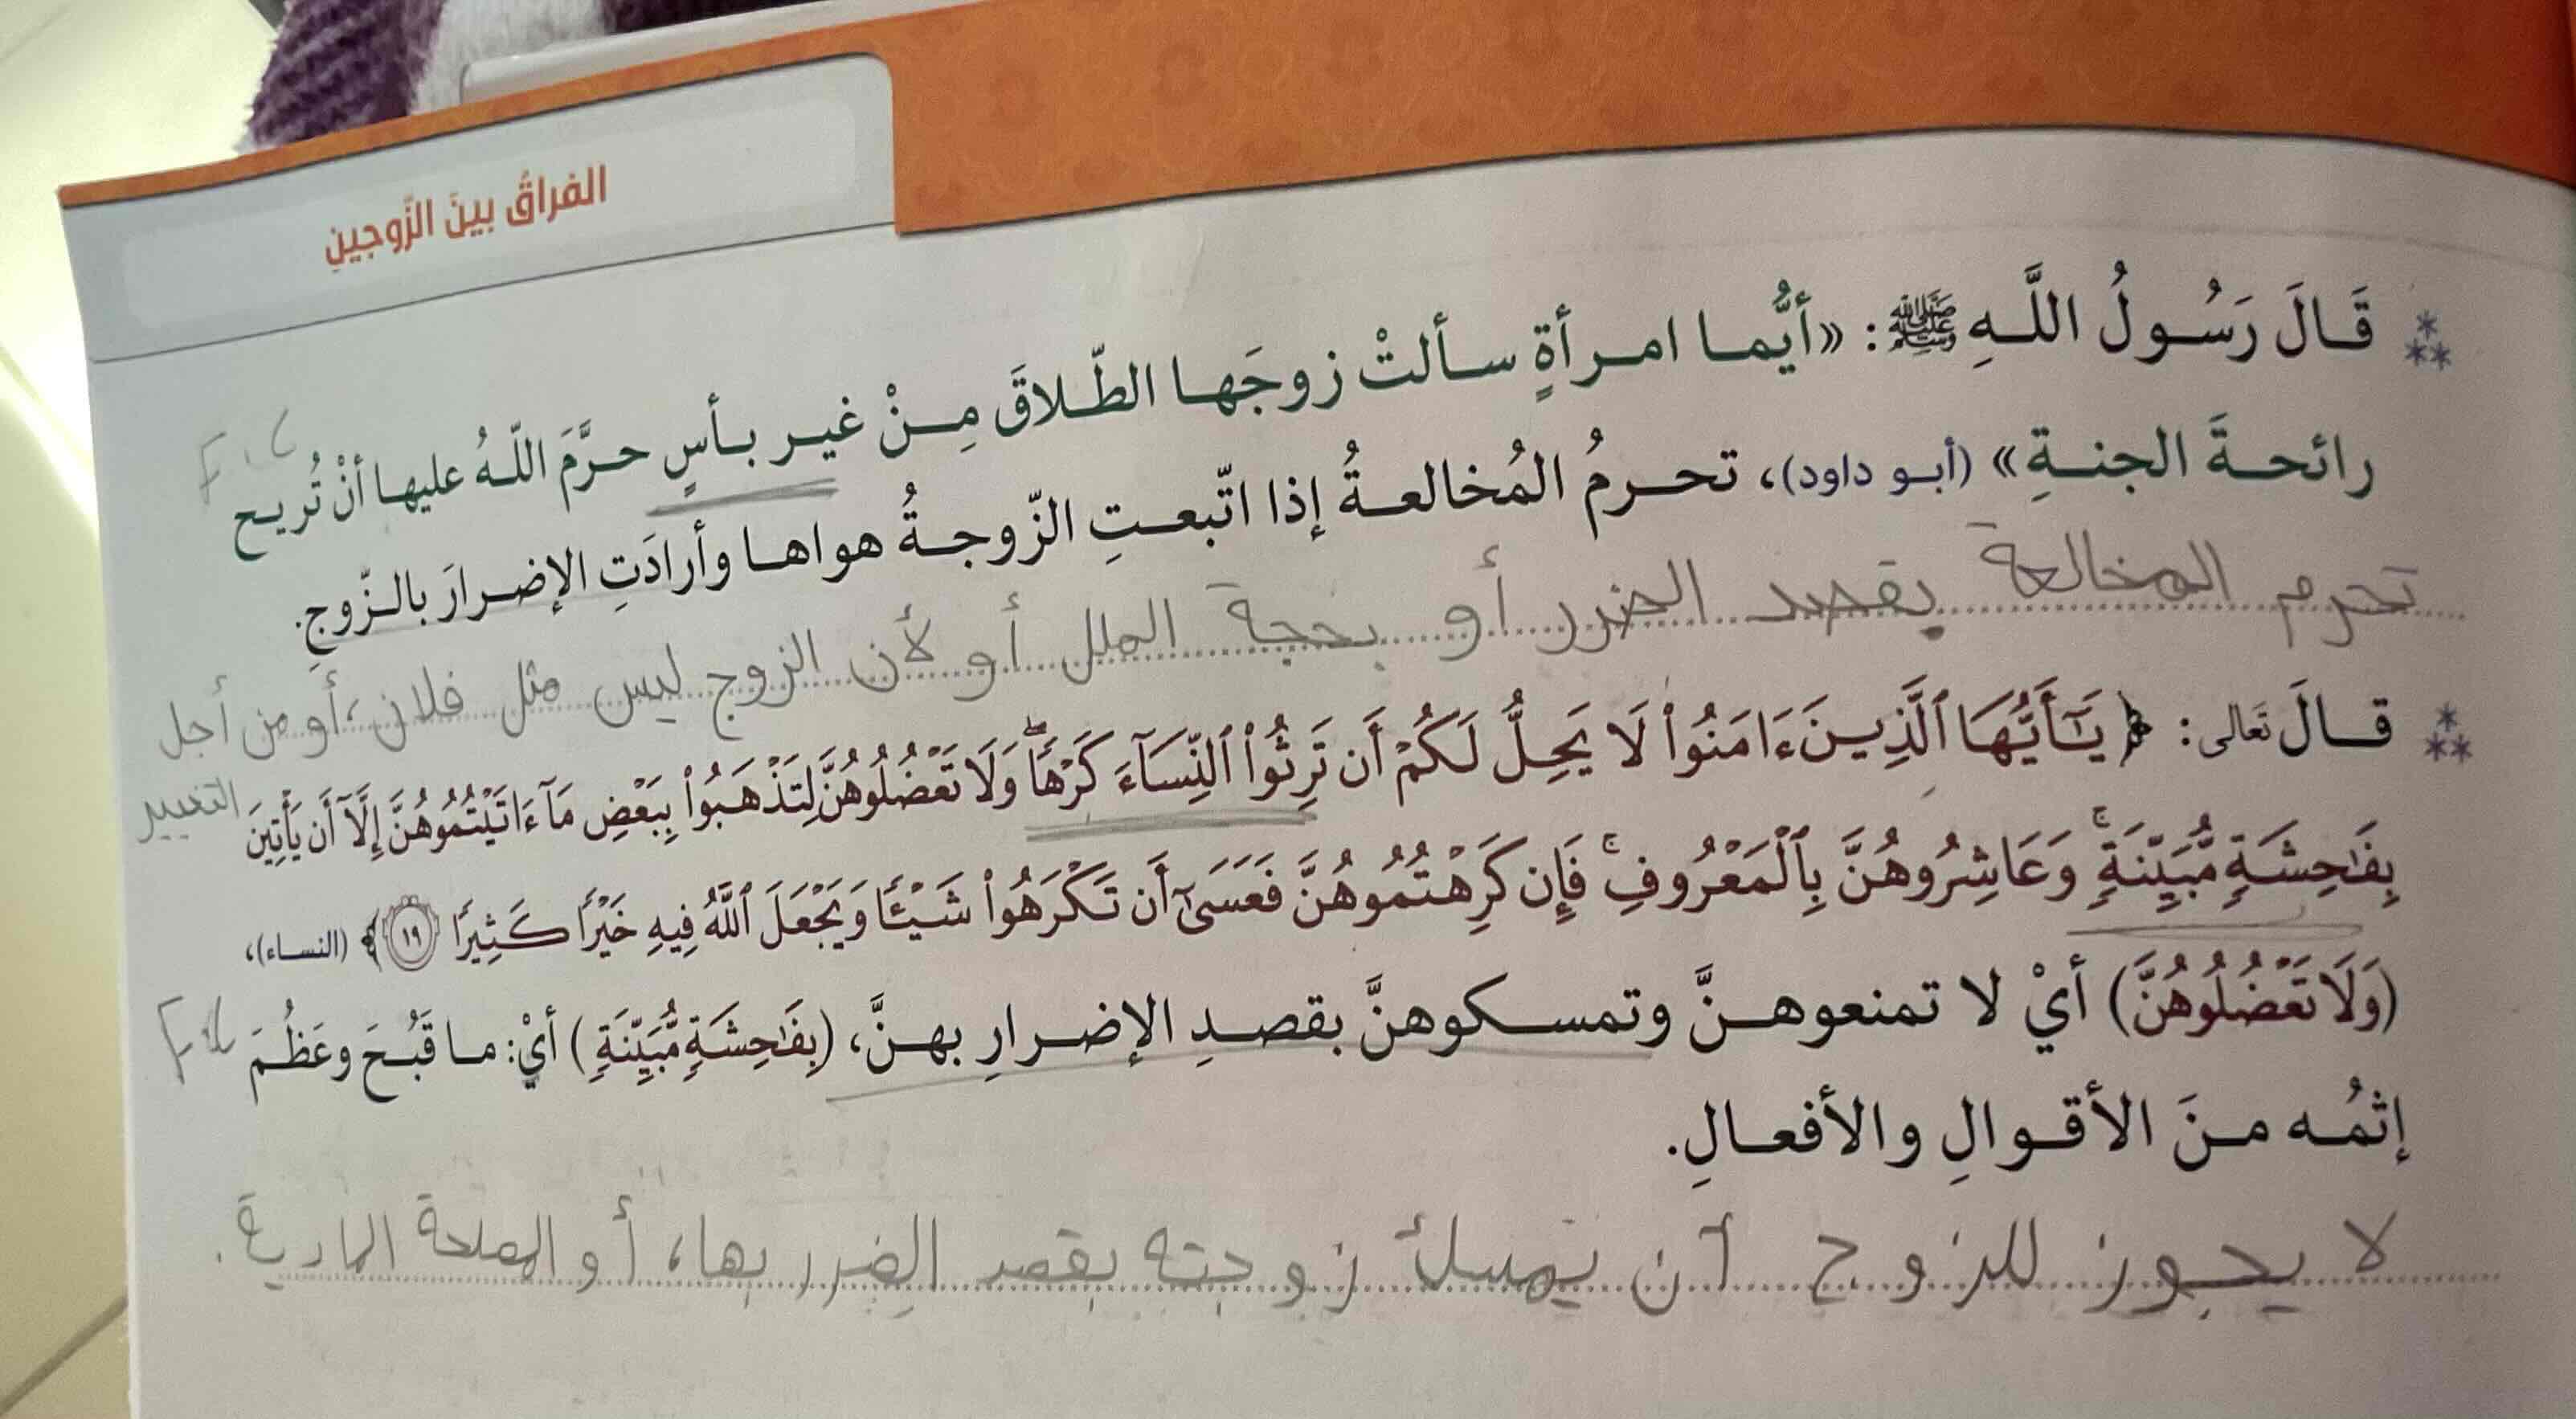 الفراقُ بينَ الزَّوجينِ
قَالَ رَسُولُ اللَّهِ ﷺ: «أيُّما امرأةٍ سألتْ زوجَها الطّلاقَ مِنْ غيرِ بأسٍ حرَّمَ اللّهُ عليها أنْ تُريح
رائحةَ الجنةِ» (أبو داود)، تحرمُ المُخالعةُ إذا اتّبعتِ الزّوجةُ هواها وأرادَتِ الإضرارَ بالزّوجِ.
تحرم المخالعة بقصد الضرر أو بحجة الملل أو لأن الزوج ليس مثل فلان، أو من أجل
التغيير
قالَ تَعَالى: ﴿يَـٰٓأَيُّهَا ٱلَّذِينَ ءَامَنُوا۟ لَا يَحِلُّ لَكُمْ أَن تَرِثُوا۟ ٱلنِّسَآءَ كَرْهًاۖ وَلَا تَعْضُلُوهُنَّ لِتَذْهَبُوا۟ بِبَعْضِ مَآ ءَاتَيْتُمُوهُنَّ إِلَّآ أَن يَأْتِينَ
بِفَـٰحِشَةٍ مُّبَيِّنَةٍۚ وَعَاشِرُوهُنَّ بِٱلْمَعْرُوفِۚ فَإِن كَرِهْتُمُوهُنَّ فَعَسَىٰٓ أَن تَكْرَهُوا۟ شَيْـًٔا وَيَجْعَلَ ٱللَّهُ فِيهِ خَيْرًا كَثِيرًا ١٩﴾ (النساء)،
(وَلَا تَعْضُلُوهُنَّ) أيْ لا تمنعوهنَّ وتمسكوهنَّ بقصدِ الإضرارِ بهنَّ، (بِفَـٰحِشَةٍ مُّبَيِّنَةٍ) أيْ: ما قَبُحَ وعَظُمَ
إثمُه منَ الأقوالِ والأفعالِ.
لا يجوز للزوج أن يمسك زوجته بقصد الضرر بها، أو المصلحة المادية.